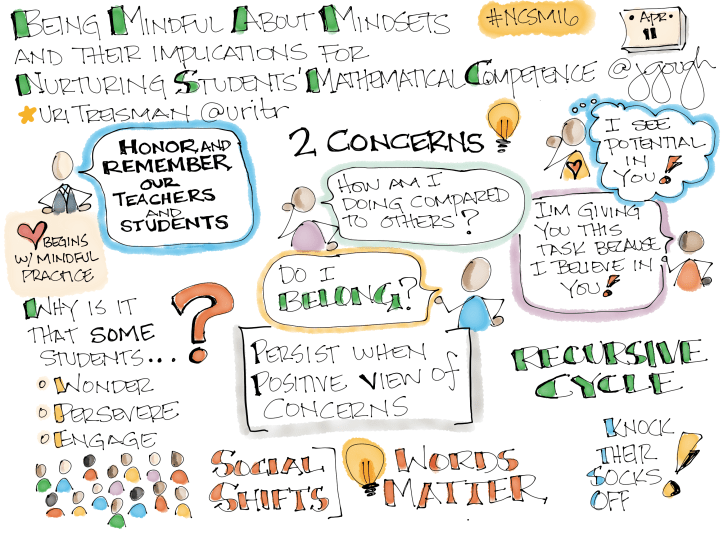 BEING MINDFUL ABOUT MINDSETS
AND THEIR IMPLICATIONS FOR
NURTURING STUDENTS' MATHEMATICAL COMPETENCE @jgough
URI TREISMAN @uritr
#NCSM16
APR.
11
HONOR AND
REMEMBER
OUR
TEACHERS
AND
STUDENTS
BEGINS
W/ MINDFUL
PRACTICE
2 CONCERNS
HOW AM I
DOING COMPARED
TO OTHERS?
DO I
BELONG?
I SEE
POTENTIAL
IN
YOU!
I'M GIVING
YOU THIS
TASK BECAUSE
I BELIEVE IN
YOU!
WHY IS IT
THAT SOME
STUDENTS...
WONDER
PERSEVERE
ENGAGE
?
PERSIST WHEN
POSITIVE VIEW OF
CONCERNS
RECURSIVE
CYCLE
SOCIAL
SHIFTS
WORDS
MATTER
KNOCK
THEIR
SOCKS
OFF!